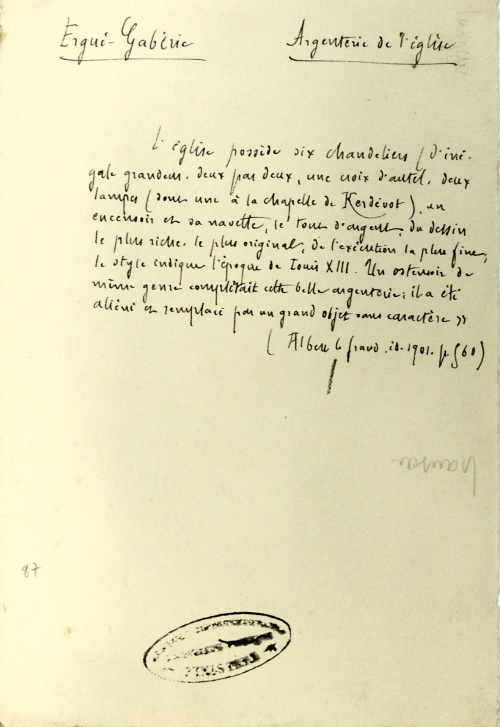 Ergué-Gabéric Argenterie de l'église
L'église possède six chandeliers (d'iné-
gale grandeur. deux par deux, une croix d'autel, deux
lampes (dont une à la chapelle de Kerdévot), un
encensoir et sa navette, le tout d'argent, du dessin
le plus riche. le plus original, de l'exécution la plus fine,
le style indique l'époque de Louis XIII. Un ostensoir de
même genre complétait cette belle argenterie; il a été
aliéné et remplacé par un grand objet sans caractère »
(Albert le Grand. éd. 1901. p 560)
87
FINISTÈRE